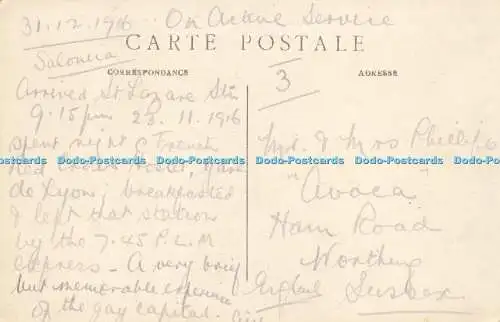 31.12.1916 On Active Service
CARTE POSTALE
Salonica
CORRESPONDANCE
ADRESSE
3
Arrived St. Lazare Stn
9.15 pm 23.11.1916
spent night @ French
Red Cross Hostel, Gare
de Lyon; breakfasted
& left that station
by the 7.45 P.L.M
express - A very brief
but memorable experience
of the gay capital.
Mr. & Mrs Phillips
"Avoca"
Ham Road
Worthing
England Sussex
Postcards Postcards Postcards Postcards Postcards Postcards Postcards